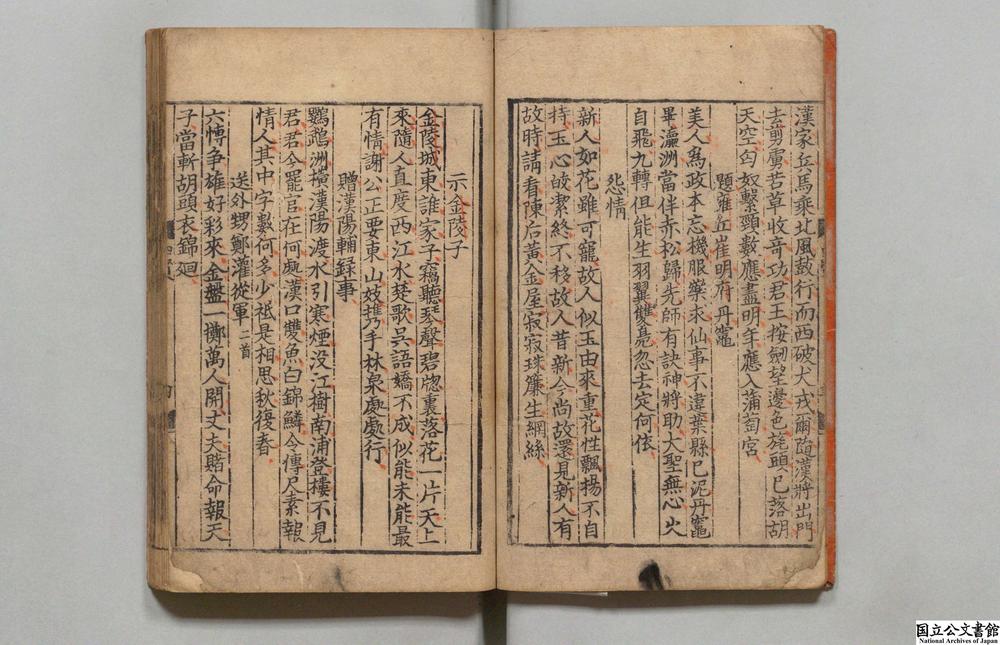 漢家兵馬乘北風鼓行而西破犬戎爾隨漢將出門
去剪虜若草收奇功君王按劒望邊色旄頭已落胡
天空匈奴繫頸數應盡明年應入蒲萄宮
題雍丘崔明府丹竈
美人爲政本忘機服藥求仙事不違葉縣已泥丹竈
畢瀛洲當伴赤松歸先師有訣神將助大聖無心火
自飛九轉但能生羽翼雙鳧忽去定何依
怨情
新人如花雖可寵故人似玉由來重花性飄揚不自
持玉心皎潔終不移故人昔新今尚故還見新人有
故時請看陳后黃金屋寂寂珠簾生網絲
示金陵子
金陵城東誰家子竊聽琴聲碧牕裏落花一片天上
來隨人直度西江水楚歌吳語嬌不成似能未能最
有情謝公正要東山妓携手林泉處處行
贈漢陽輔録事
鸚鵡洲橫漢陽渡水引寒煙没江樹南浦登樓不見
君君今罷官在何處漢口雙魚白錦鱗令傳尺素報
情人其中字數何多少祗是相思秋復春
送外甥鄭灌從軍 二首
六愽争雄好彩來金盤一擲萬人開丈夫賭命報天
子當斬胡頭衣錦廻
国立公文書館
National Archives of Japan